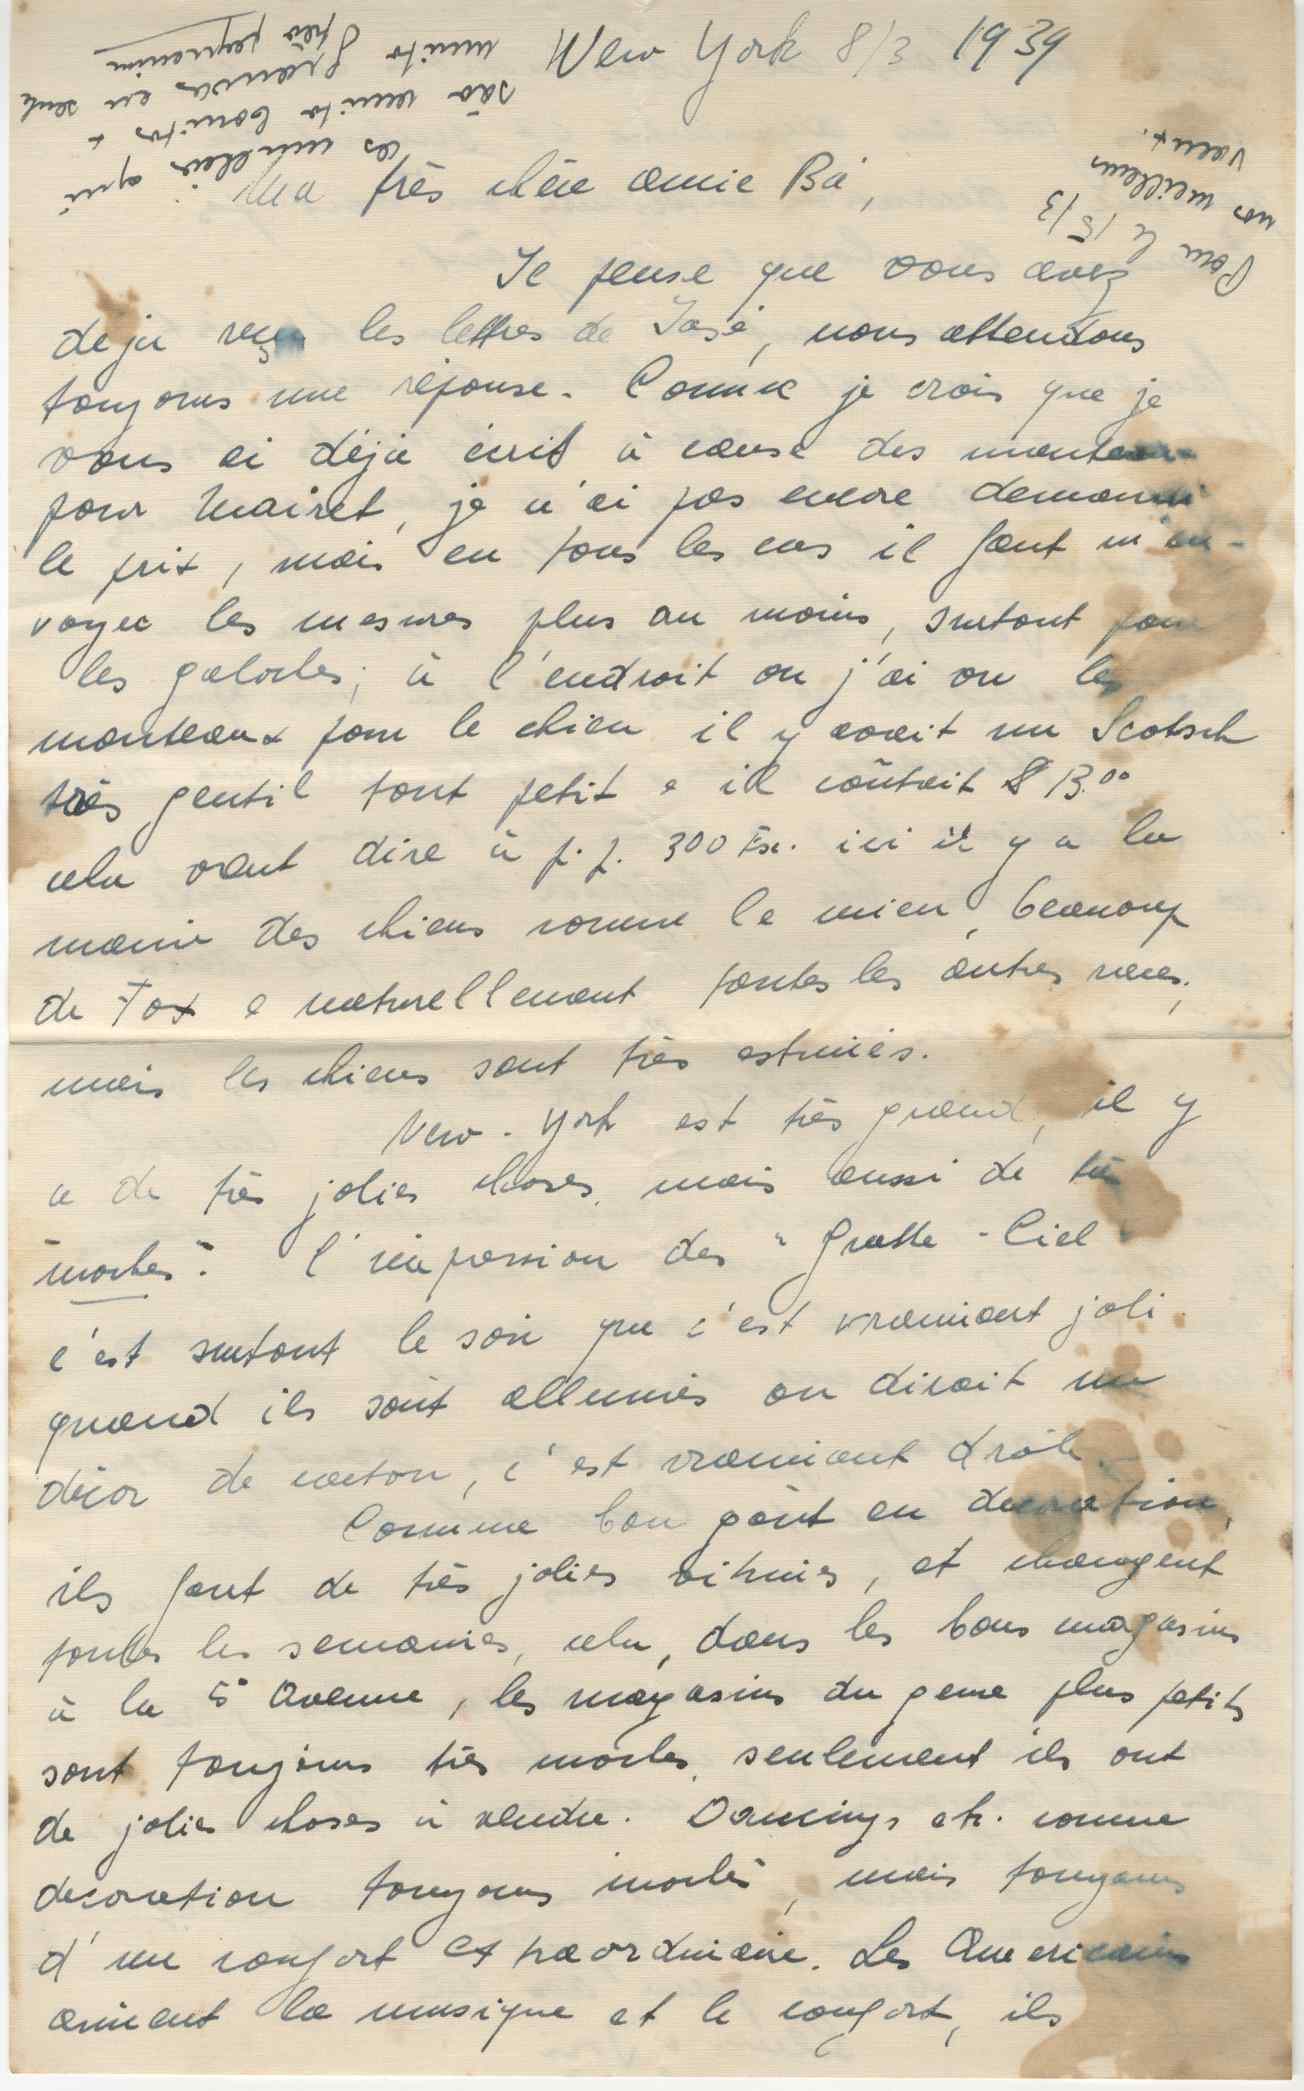 New York 8/3 1939
as mulheres aqui
são muito bonitas +
muito
Pour le 15/3
nos meilleurs
vœux.
Ma très chère amie Bá,
Je pense que vous avez
deja reçu les lettres de José, nous attendons
toujours une réponse. Comme je crois que je
vous ai déja écrit à cause des manteaux
pour Mairet, je n'ai pas encore demandé
le prix, mais en tous les cas il faut m'en-
voyer les mesures plus au moins, surtout pour
les galoches; à l'endroit ou j'ai vu les
manteaux pour le chien il y avait un Scotsch
très gentil tout petit e il coûtait $ 13.00
cela veut dire à p. p. 300 Esc. ici il y a la
manie des chiens comme le mien, beaucoup
de Fox e naturellement toutes les autres races,
mais les chiens sont très estimés.
New-York est très grand, il y
a de très jolies choses, mais aussi de très
"moches". L'impression des "Gratte-Ciel"
c'est surtout le soir que c'est vraiment joli
quand ils sont allumés on dirait un
décor de carton, c'est vraiment drôle.
Comme bon goût en decoration,
ils font de très jolies vitrines, et changent
toutes les semaines, cela, dans les bons magasins
à la 5e Avenue, les magasins du genre plus petits
sont toujours très moches, seulement ils ont
de jolies choses à vendre. Dancings etc. comme
decoration toujours moches, mais toujours
d'un confort extraordinaire. Les Americains
aiment la musique et le confort, ils